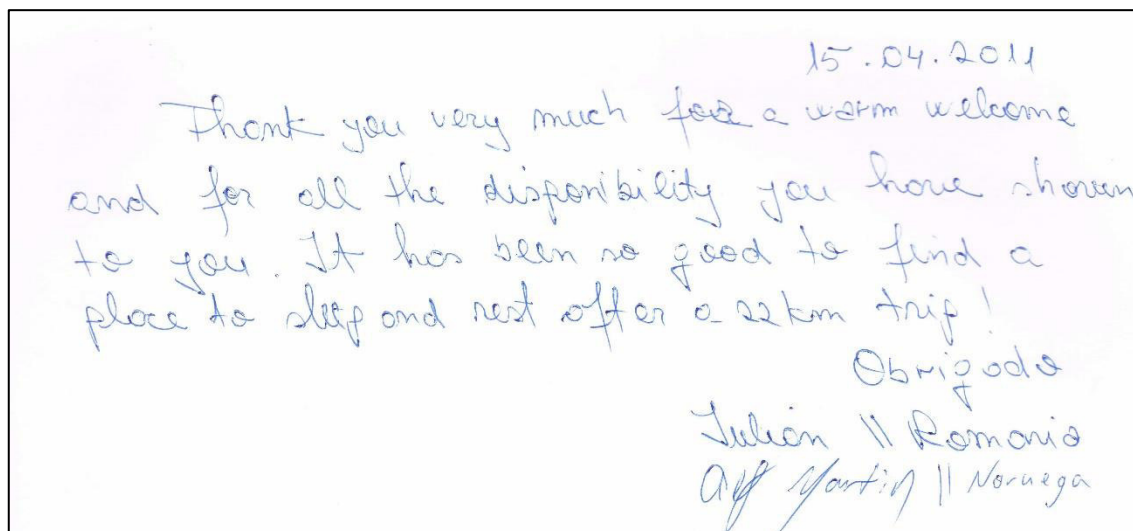 15.04.2011
Thank you very much for a warm welcome
and for all the disponibility you have shown
to you. It has been so good to find a
place to sleep and rest after a 22 km trip!
Obrigado
Iulian \\ Romania
Martin \\ Noruega